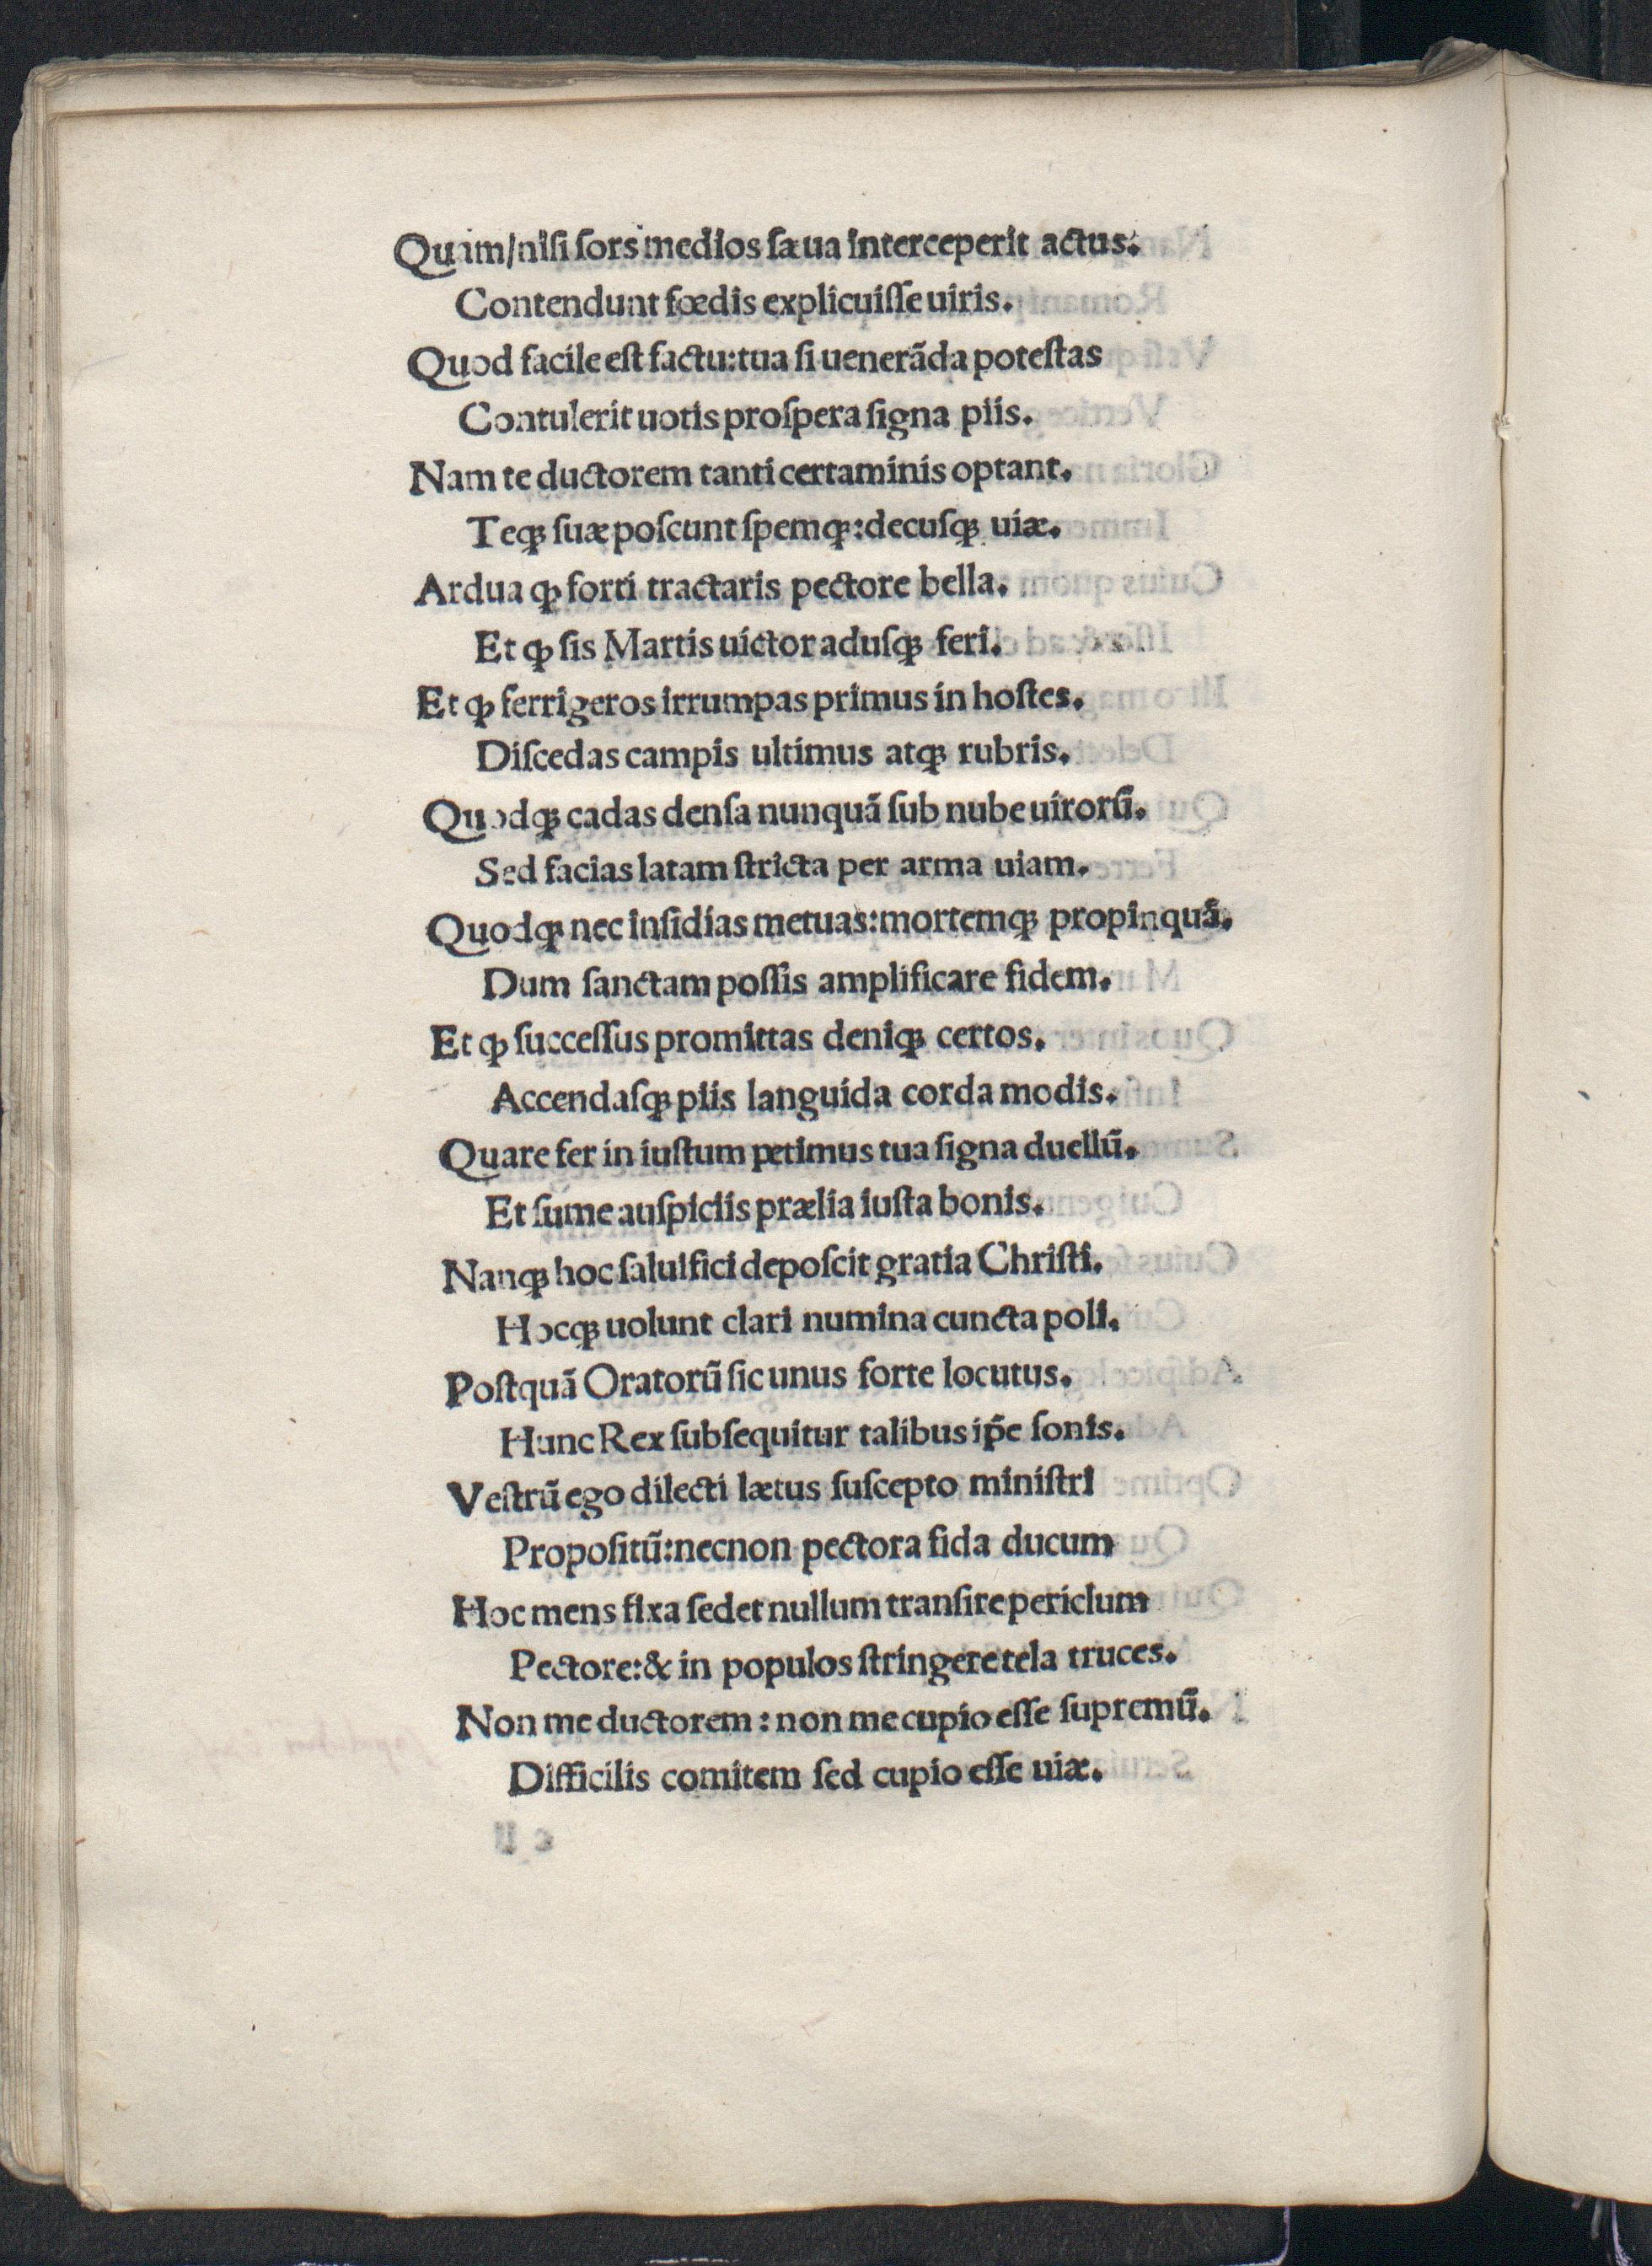 Quam/nisi sors medios sæua interceperit actus.
Contendunt fœdis explicuiſſe uiris.
Quod facile eſt factu:tua ſi uenerãda poteſtas
Contulerit uotis proſpera ſigna piis.
Nam te ductorem tanti certaminis optant.
Teqꝫ ſuæ poſcunt ſpemqꝫ:decuſqꝫ uiæ.
Ardua ꝙ forti tractaris pectore bella.
Et ꝙ ſis Martis uictor aduſqꝫ feri.
Et ꝙ ferrigeros irrumpas primus in hoſtes.
Diſcedas campis ultimus atqꝫ rubris.
Quodqꝫ cadas denſa nunquã ſub nube uirorũ.
Sed facias latam ſtricta per arma uiam.
Quodqꝫ nec inſidias metuas:mortemqꝫ propinquã.
Dum ſanctam poſſis amplificare fidem.
Et ꝙ ſucceſſus promittas deniqꝫ certos.
Accendaſqꝫ piis languida corda modis.
Quare fer in iuſtum petimus tua ſigna duellũ.
Et ſume auſpiciis prælia iuſta bonis.
Nanqꝫ hoc ſaluifici depoſcit gratia Chriſti.
Hocqꝫ uolunt clari numina cuncta poli.
Poſtquã Oratorũ ſic unus forte locutus.
Hunc Rex ſubſequitur talibus ip̃e ſonis.
Veſtrũ ego dilecti lætus ſuſcepto miniſtri
Propoſitũ:necnon pectora fida ducum
Hoc mens fixa ſedet nullum tranſire periclum
Pectore:& in populos ſtringere tela truces.
Non me ductorem : non me cupio eſſe ſupremũ.
Difficilis comitem ſed cupio eſſe uiæ.